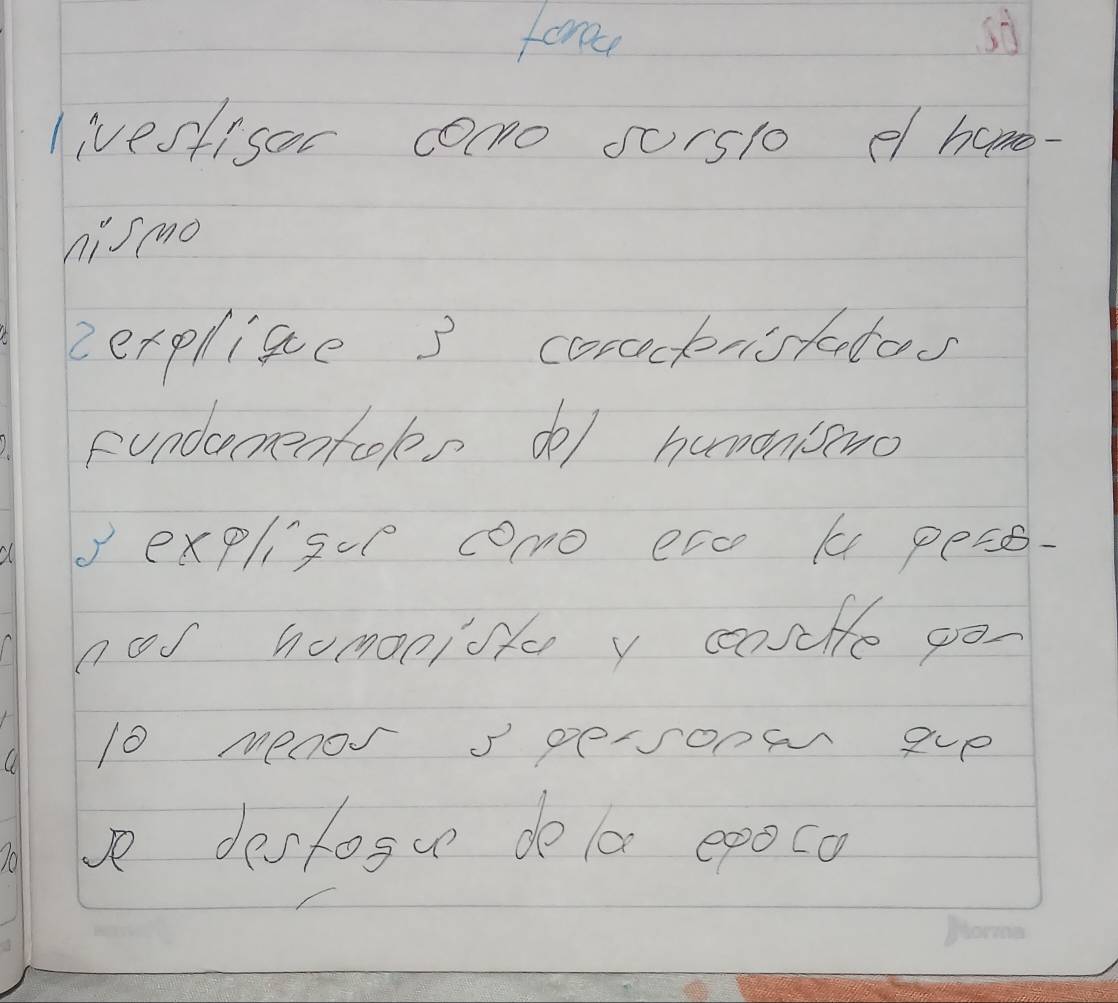 tarea
1 ivestigar como surgio el huma-
nismo
2 explique 3 caracteristatas
fundamentales del humanismo
3 explique como era la perso-
nas humanista y consulte por
lo menos 3 personas que
se destogue de la epoca
Norma